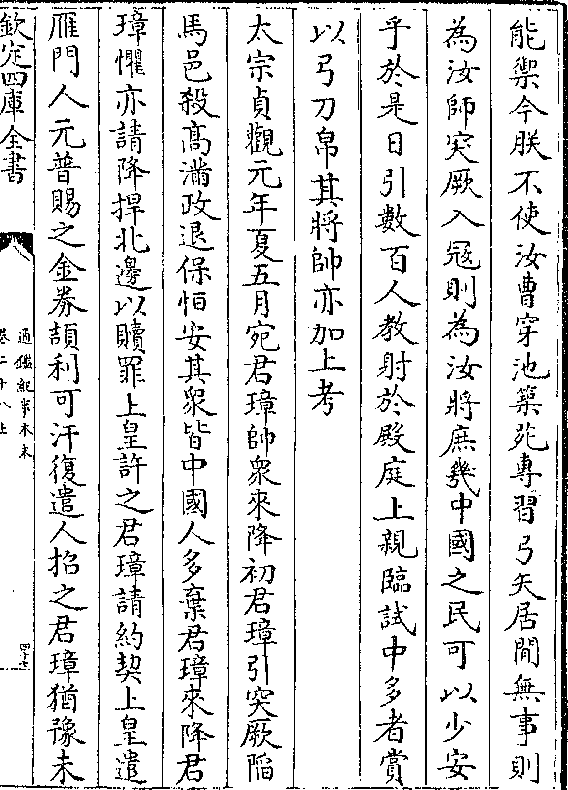 能禦今朕不使汝曹穿池築苑專習弓矢居閒無事則
為汝師突厥入冦則為汝將庶幾中國之民可以少安
乎於是日引數百人教射於殿庭上親臨試中多者賞
以弓刀帛其將帥亦加上考
太宗貞觀元年夏五月宛君璋帥衆來降初君璋引突厥陷
馬邑殺髙滿政退保恒安其衆皆中國人多棄君璋來降君
璋懼亦請降捍北邊以贖罪上皇許之君璋請約契上皇遣
雁門人元普賜之金券頡利可汗復遣人招之君璋猶豫未
欽定四庫全書
通鑑紀事本末
卷二十八上